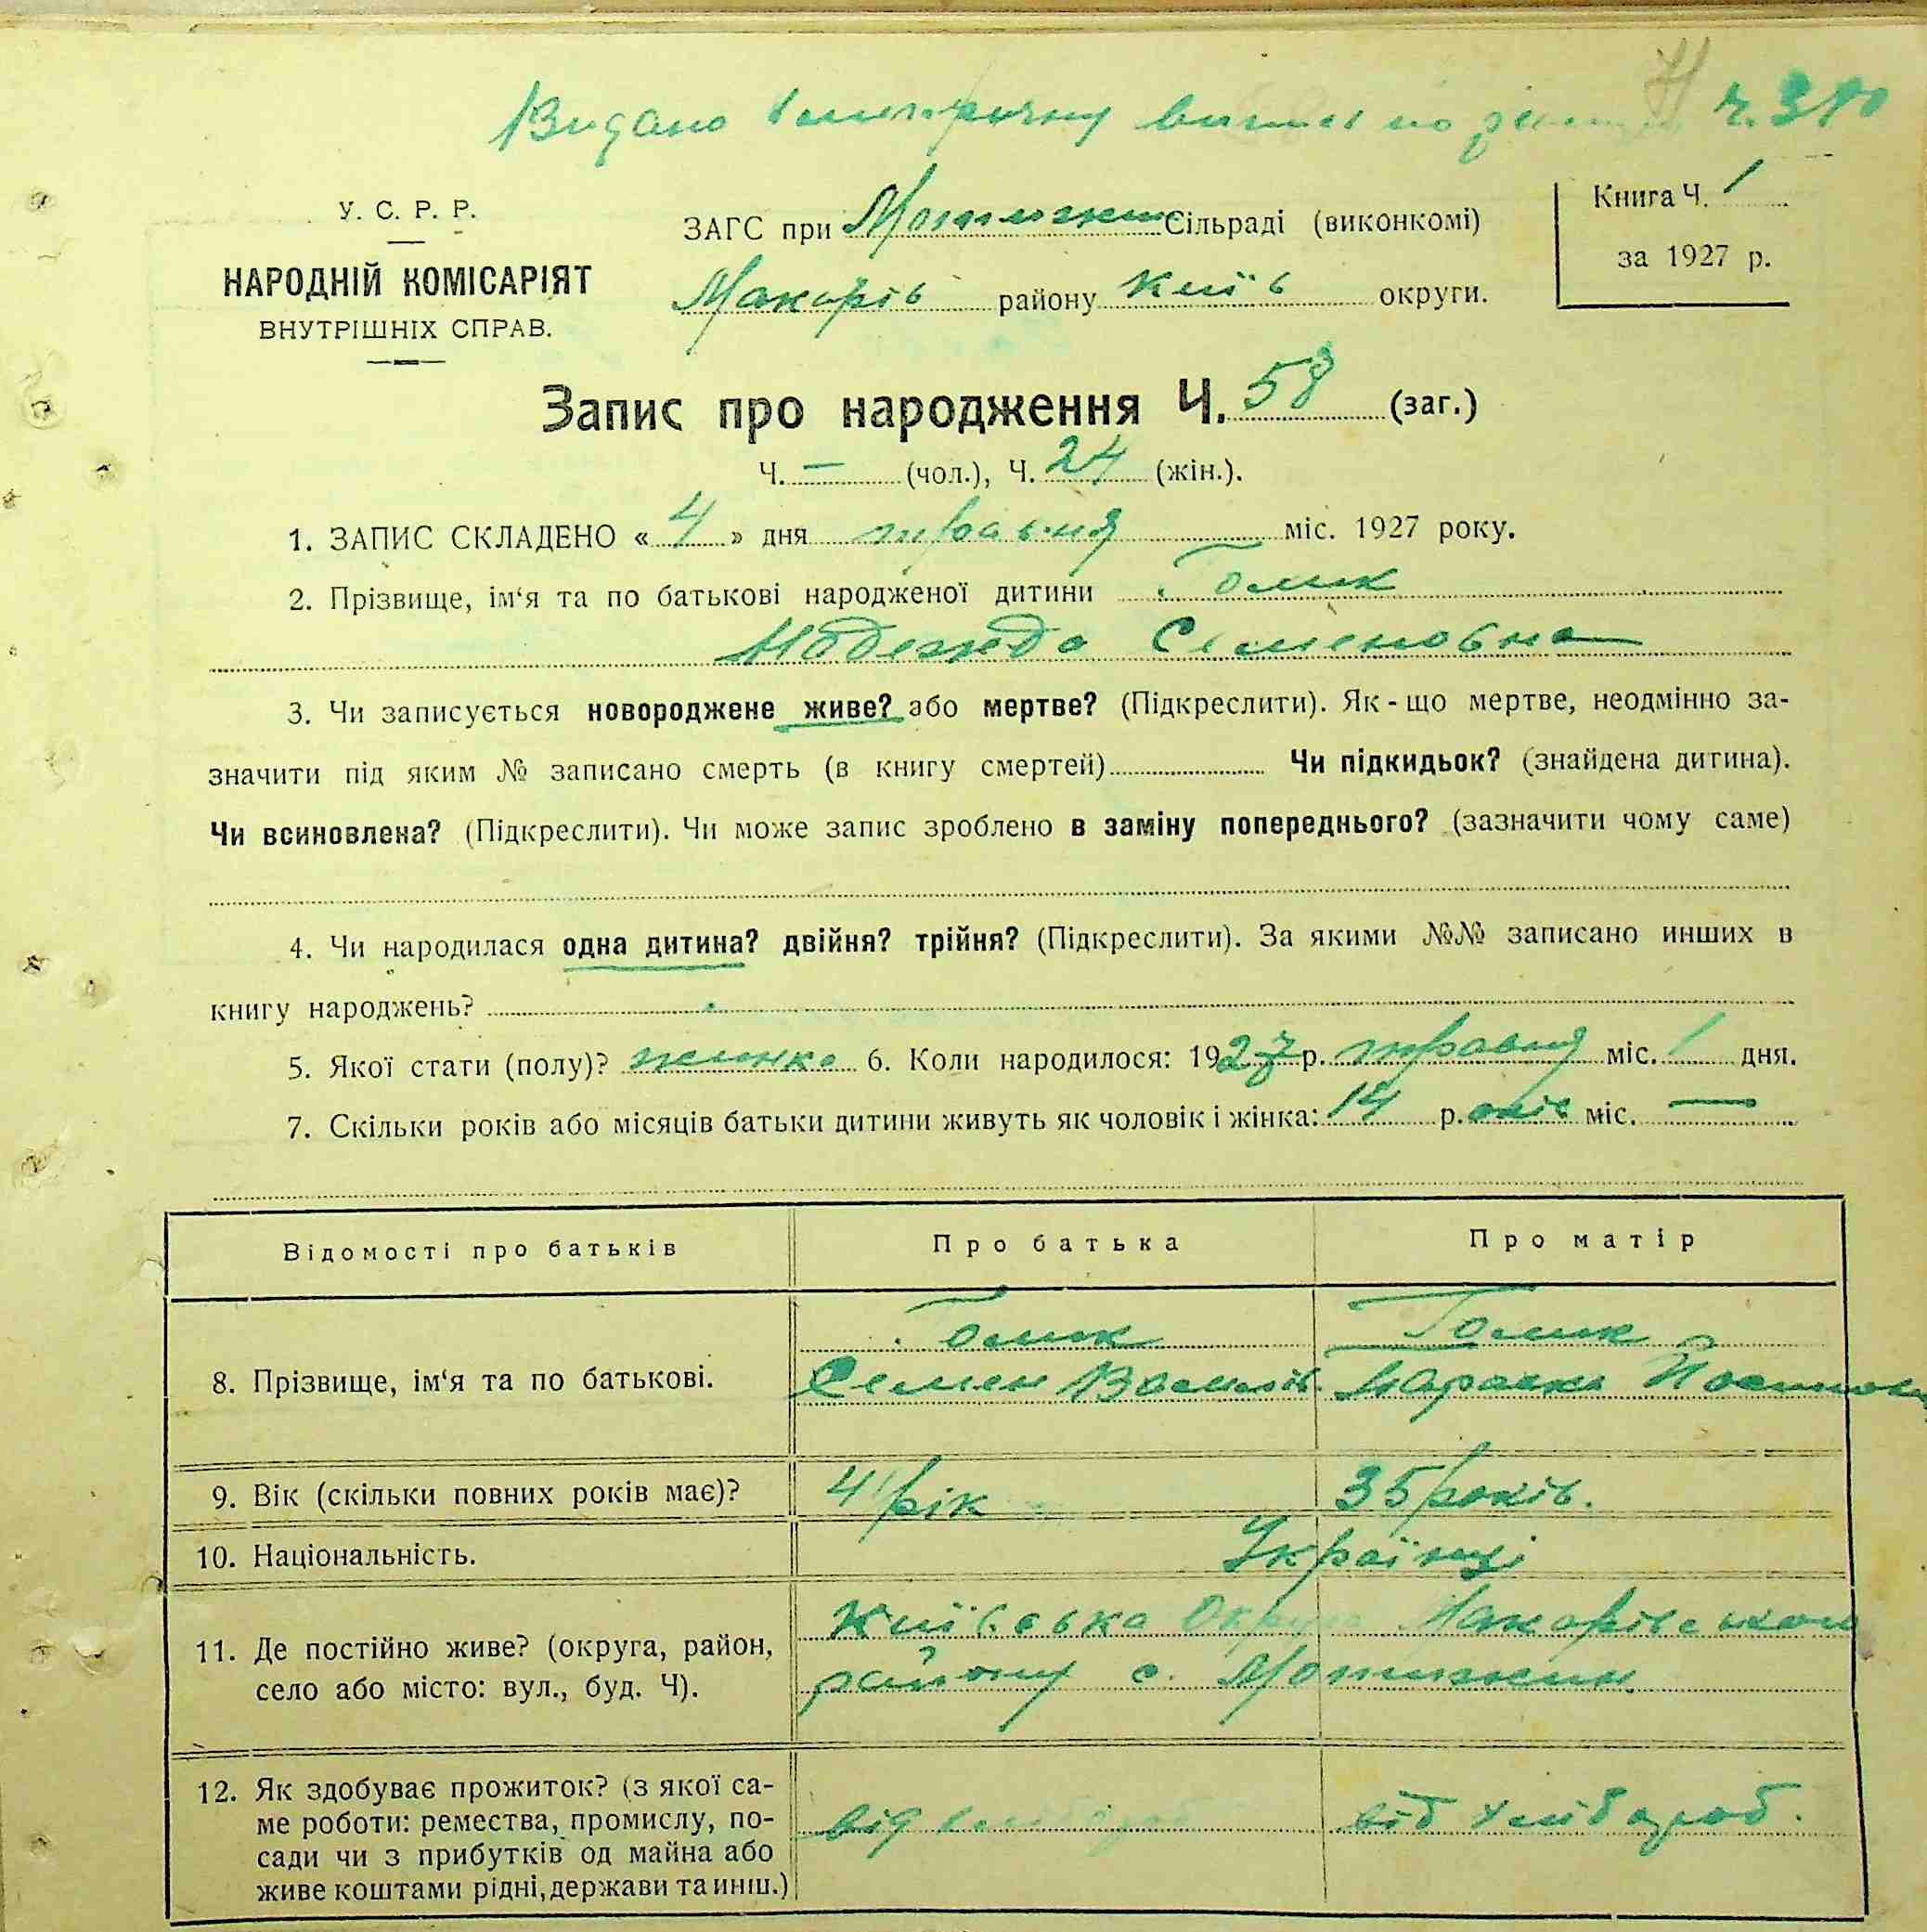 Видано випис по ч. 3
У. С. Р. Р.
НАРОДНІЙ КОМІСАРІЯТ
ВНУТРІШНІХ СПРАВ.
ЗАГС при Мотижин Сільраді (виконкомі)
Макарів району Київ округи.
Книга Ч. 1
за 1927 р.
Запис про народження Ч. 58 (заг.)
Ч. — (чол.), Ч. 24 (жін.).
1. ЗАПИС СКЛАДЕНО « 4 » дня травня міс. 1927 року.
2. Прізвище, ім‘я та по батькові народженої дитини Гомик
Надежда Семеновна
3. Чи записується новороджене живе? або мертве? (Підкреслити). Як - що мертве, неодмінно за-
значити під яким № записано смерть (в книгу смертей) Чи підкидьок? (знайдена дитина).
Чи всиновлена? (Підкреслити). Чи може запис зроблено в заміну попереднього? (зазначити чому саме)
4. Чи народилася одна дитина? двійня? трійня? (Підкреслити). За якими №№ записано инших в
книгу народжень?
5. Якої стати (полу)? жинка 6. Коли народилося: 1927 р. травня міс. 1 дня.
7. Скільки років або місяців батьки дитини живуть як чоловік і жінка: 14 р. міс. —
Відомості про батьків
Про батька
Про матір
8. Прізвище, ім‘я та по батькові.
Гомик
Семен Василів
Гомик
9. Вік (скільки повних років має)?
41 рік
35 років.
10. Національність.
Українці
11. Де постійно живе? (округа, район,
село або місто: вул., буд. Ч).
Київська Округа Макарівського
району с. Мотижин
12. Як здобуває прожиток? (з якої са-
ме роботи: ремества, промислу, по-
сади чи з прибутків од майна або
живе коштами рідні, держави та инш.)
від
від хлібороб.